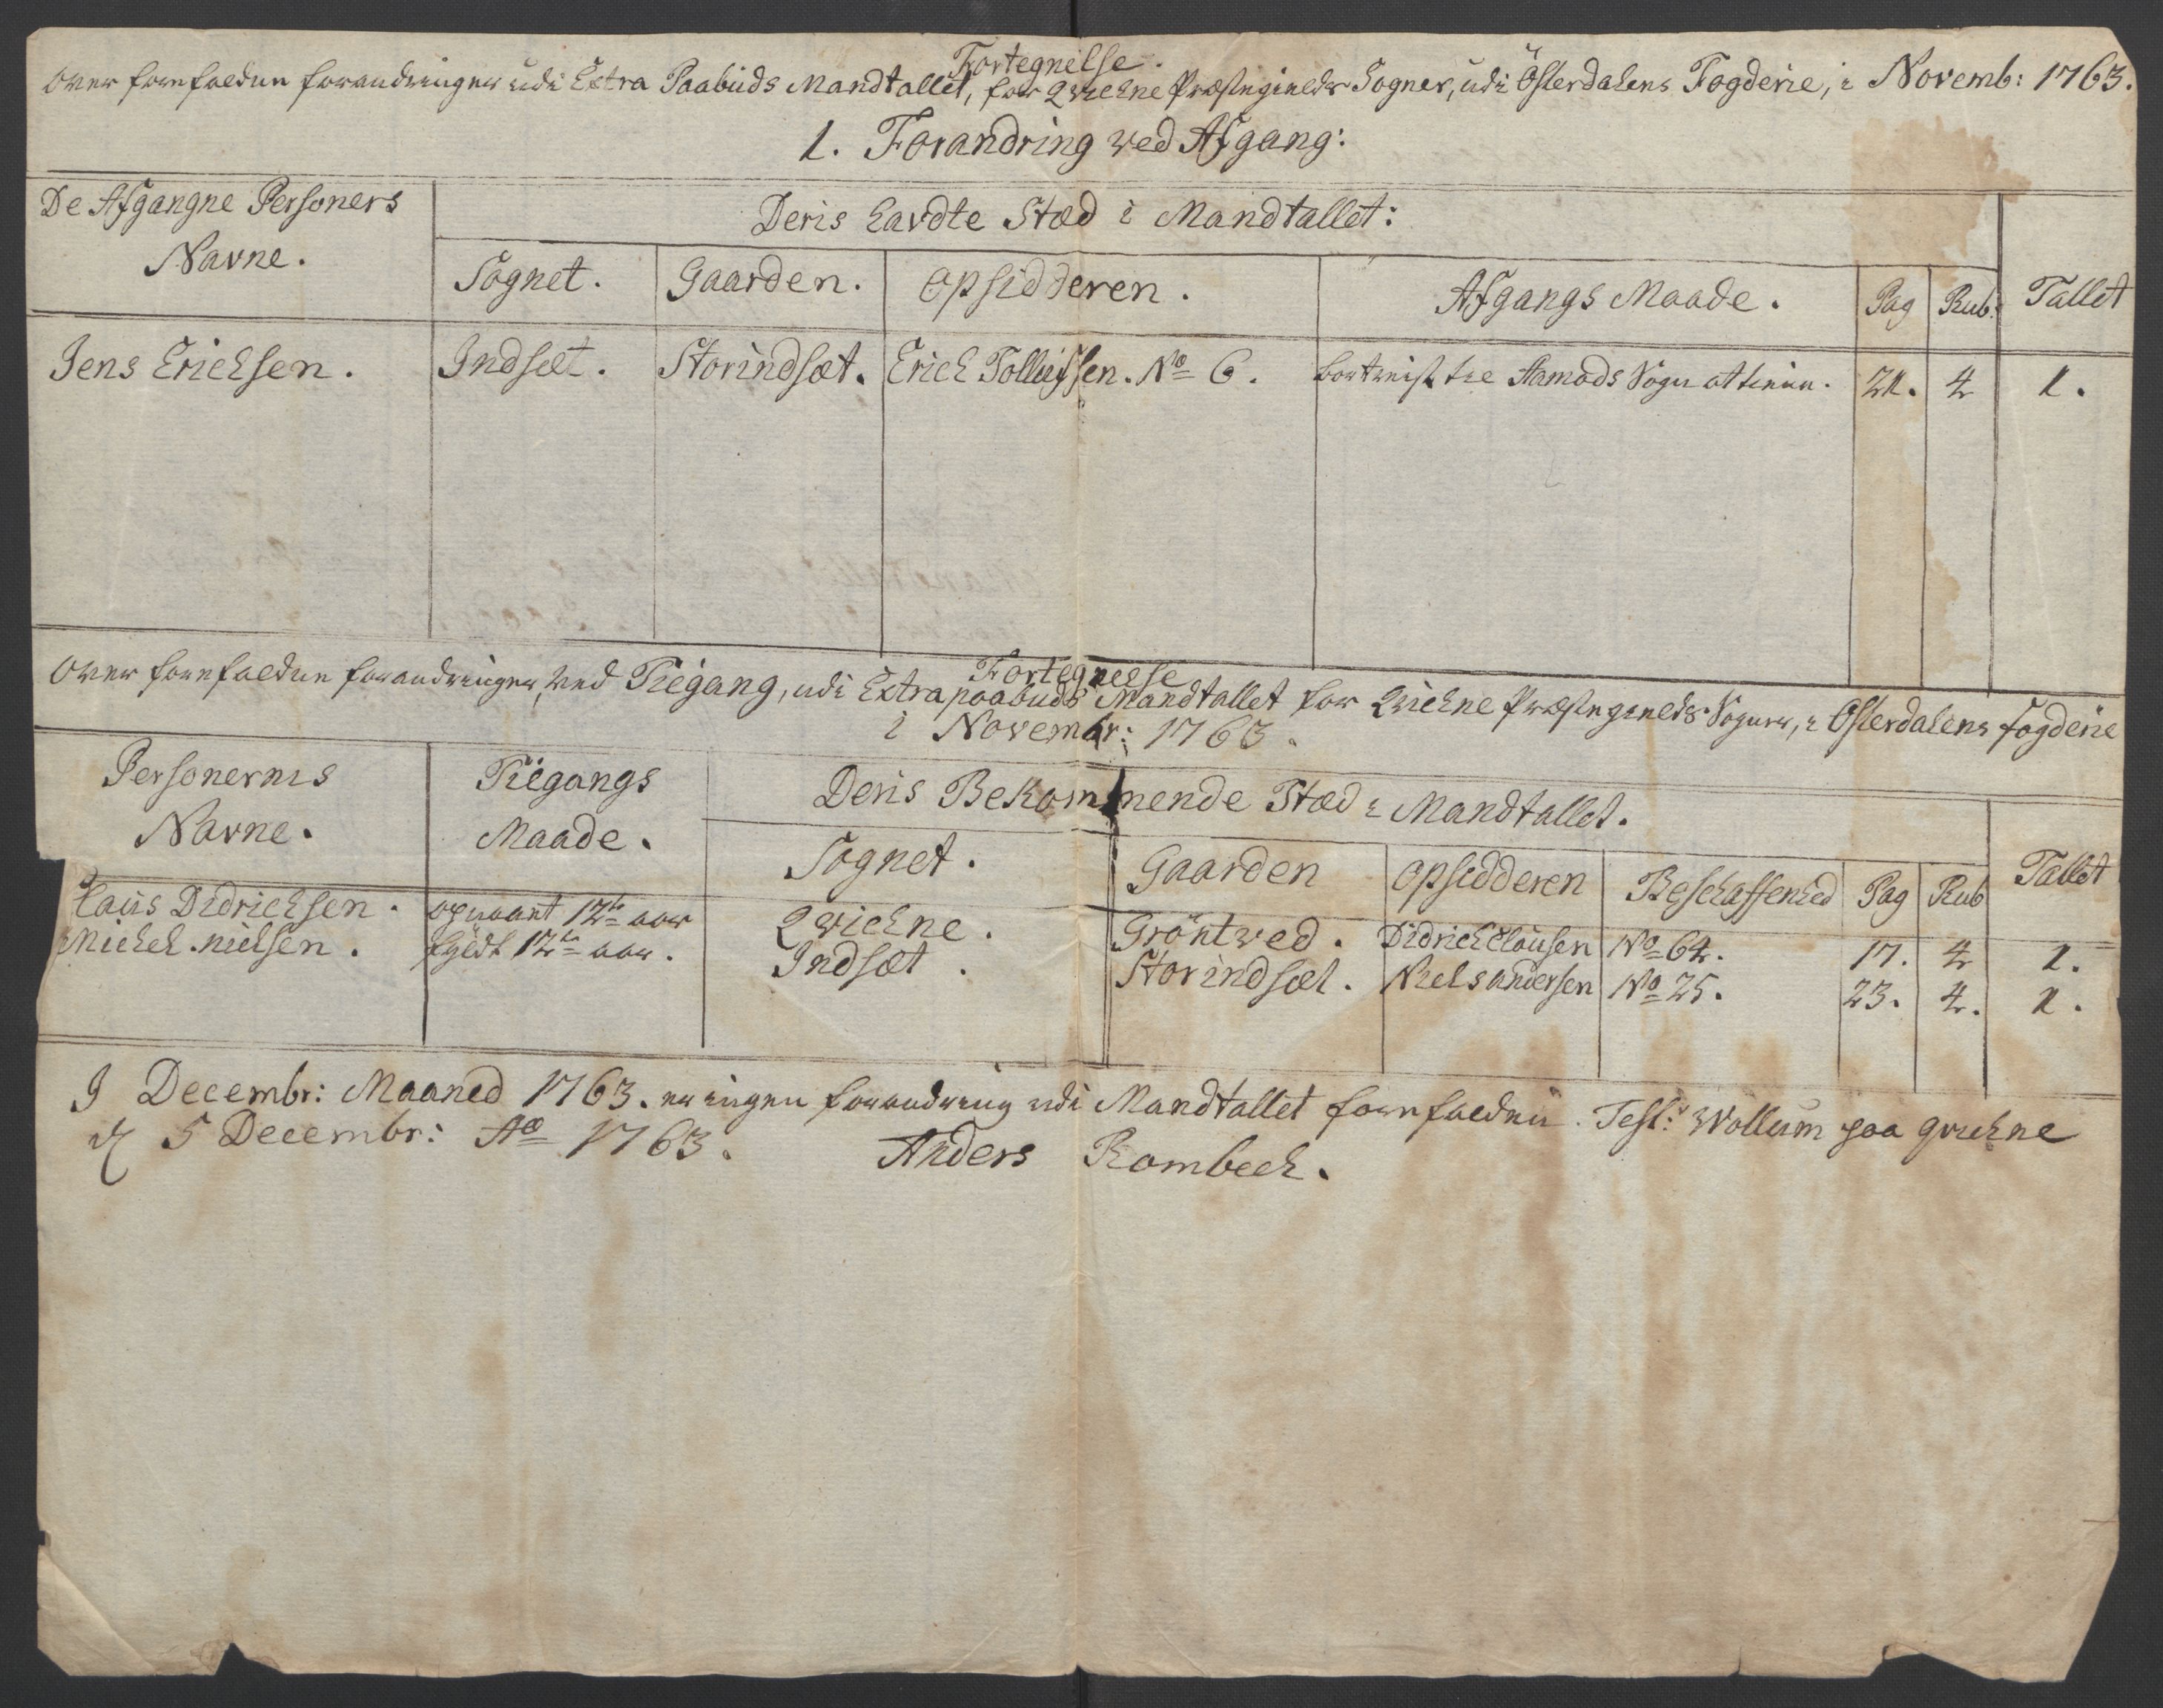 Fortegnelse.
Over forrefaldne forandringer udi Extra Paabuds Mandtallet, for Qvichne Præstegields Sogner, udi Österdalens Fogderie, i Novemb: 1763.
1. Forandring ved Afgang:
De Afgangne Personers Deris havdte Stæd i Mandtallet:
Navne. Sognet. Gaarden. Opsidderen. Afgangs Maade. Pag Rub: Tallet
Jens Erichsen. Indsæt. Storindsæt. Erich Tollefssen. No 6. bortreist til Aamods Sogn at tiene. 21. 4 1.
Fortegnelse
Over forrefaldne forandringer, ved Tilgang, udi Extrapaabuds Mandtallet for Qvichne Præstegields Sogner, i Österdalens fogderie
i Novembr: 1763.
Personernis Tilgangs Deris Bekommende Stæd i Mandtallet.
Navne. Maade. Sognet. Gaarden Opsidderen Beskaffenhed Pag Rub Tallet
Claus Didrichsen. opnaaet 12te aar Qvichne. Gröntved. Didrich Clausen No 64. 17. 4 1.
Michel Nielsen. fyldt 12te aar. Indsæt. Storindsæt. Niels Andersen No 25. 23. 4. 1.
I Decembr: Maaned 1763. er ingen forandring udi Mandtallet forrefalden. Test: Wollum paa qvichne
d 5 Decembr: Ao 1763. Anders Rombech.